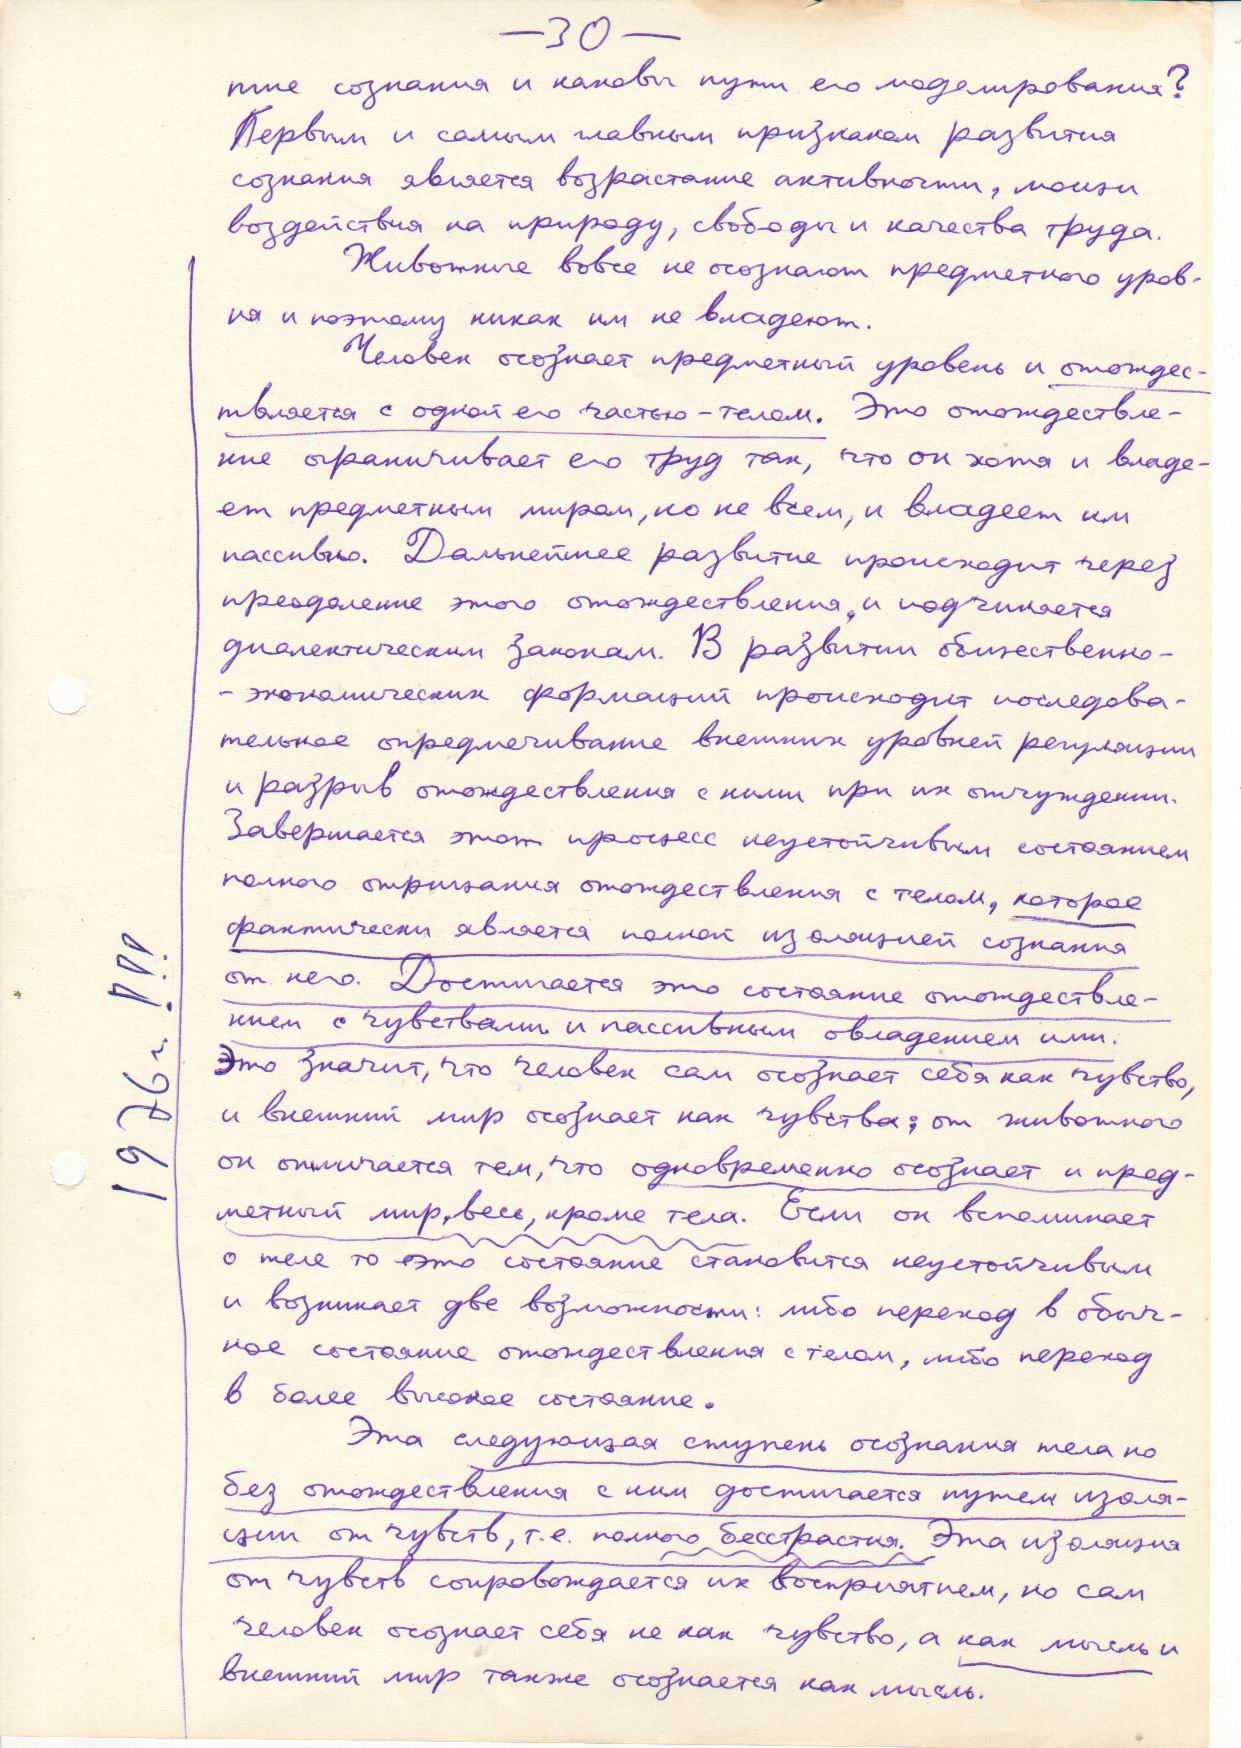 —30—
тие сознания и каковы пути его моделирования?
Первым и самым главным признаком развития
сознания является возрастание активности, мощи
воздействия на природу, свободы и качества труда.
Животные вовсе не осознают предметного уров-
ня и поэтому никак им не владеют.
Человек осознает предметный уровень и отождес-
твляется с одной его частью - телом. Это отождествле-
ние ограничивает его труд так, что он хотя и владе-
ет предметным миром, но не всем, и владеет им
пассивно. Дальнейшее развитие происходит через
преодоление этого отождествления, и подчиняется
диалектическим законам. В развитии общественно-
-экономических формаций происходит последова-
тельное опредмечивание внешних уровней регуляции
и разрыв отождествления с ними при их отчуждении.
Завершается этот процесс неустойчивым состоянием
полного отрицания отождествления с телом, которое
фактически является полной изоляцией сознания
от него. Достигается это состояние отождествле-
нием с чувствами и пассивным овладением ими.
Это значит, что человек сам осознает себя как чувство,
и внешний мир осознает как чувства; от животного
он отличается тем, что одновременно осознает и пред-
метный мир, весь, кроме тела. Если он вспоминает
о теле то это состояние становится неустойчивым
и возникает две возможности: либо переход в обыч-
ное состояние отождествления с телом, либо переход
в более высокое состояние.
Эта следующая ступень осознания тела но
без отождествления с ним достигается путем изоля-
ции от чувств, т.е. полного бесстрастия. Эта изоляция
от чувств сопровождается их восприятием, но сам
человек осознает себя не как чувство, а как мысль и
внешний мир также осознается как мысль.
1976 г. !!!